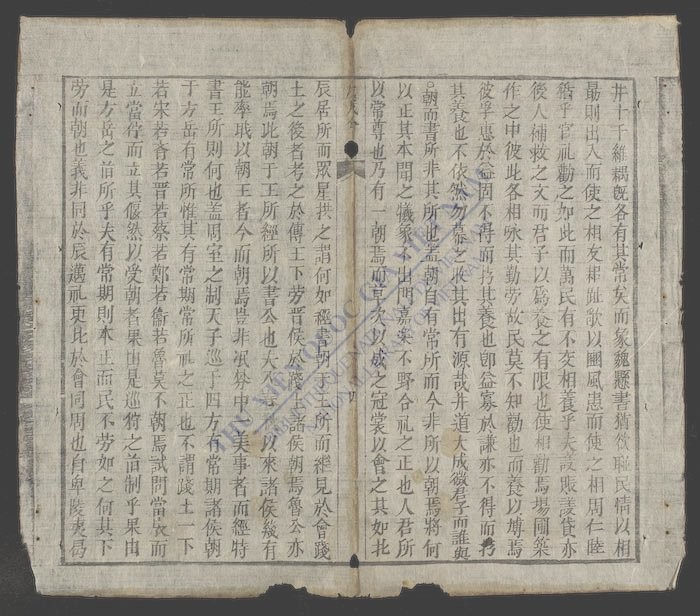 井十千維耦旣各有其常矣而象魏懸書猶欲聯民情以相
勗則出入而使之相友耜趾飮以國風患而使之相周仁睦
籍乎官祉勸之如此而萬民有不交相養乎夫設賬議貸亦
後人補救之文而君子以爲養之有限也使相勸焉場圃築
作之中彼此各相咏其勤勞故民莫不知勸也而養以博焉
彼孚惠於益固不得而持其養也卽益寡於謙亦不得而
其養也不依然勿幕之收其出有源哉井道大成微君子而誰與
朝而書所非其所也盖朝自有常所而今非所以朝焉將何
以正其本聞之犧象不出門嘉樂不野合礼之正也人君所
以常尊也乃有一朝焉而草次以成之冠裳以會之其如北
辰居所而眾星拱之謂何如經書朝王所而継見於會踐
土之後者考之於傳王下劳晋侯於踐土諸侯朝焉魯公亦
朝焉此朝于王所經所以書公也大以來諸侯幾有
能率職以朝王者今而朝焉豈非中美事者而經特
書王所則何也盖周室之制天子巡于四方有常期諸侯朝
于方岳有常所惟其有常期常所礼之正也不謂踐土一下
若宋若齊若晋若蔡若鄭若衞若魯莫不朝焉試問當扆而
立當佇而立其偃然以受朝者果由是巡狩之諸制乎果由
是方岳之諸所乎夫有常期則本正而民不劳如之何其下
劳而朝也義非同於辰邁礼更比於會同周也自卑陵夷爲